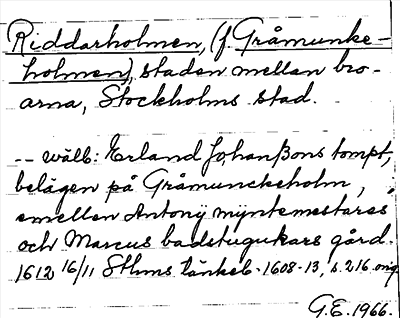 Riddarholmen, (f. Gråmunke-
holmen), staden mellan bro-
arna, Stockholms stad.
-- wälb: Erland Johanßons tompt,
belägen på Gråmunckeholm,
emellen Antonÿ mÿntemestares
och Marcus badstugukars gård.
1612 16/11 Sthms tänkeb. 1608-13, s. 216 orig.
G.E. 1966.